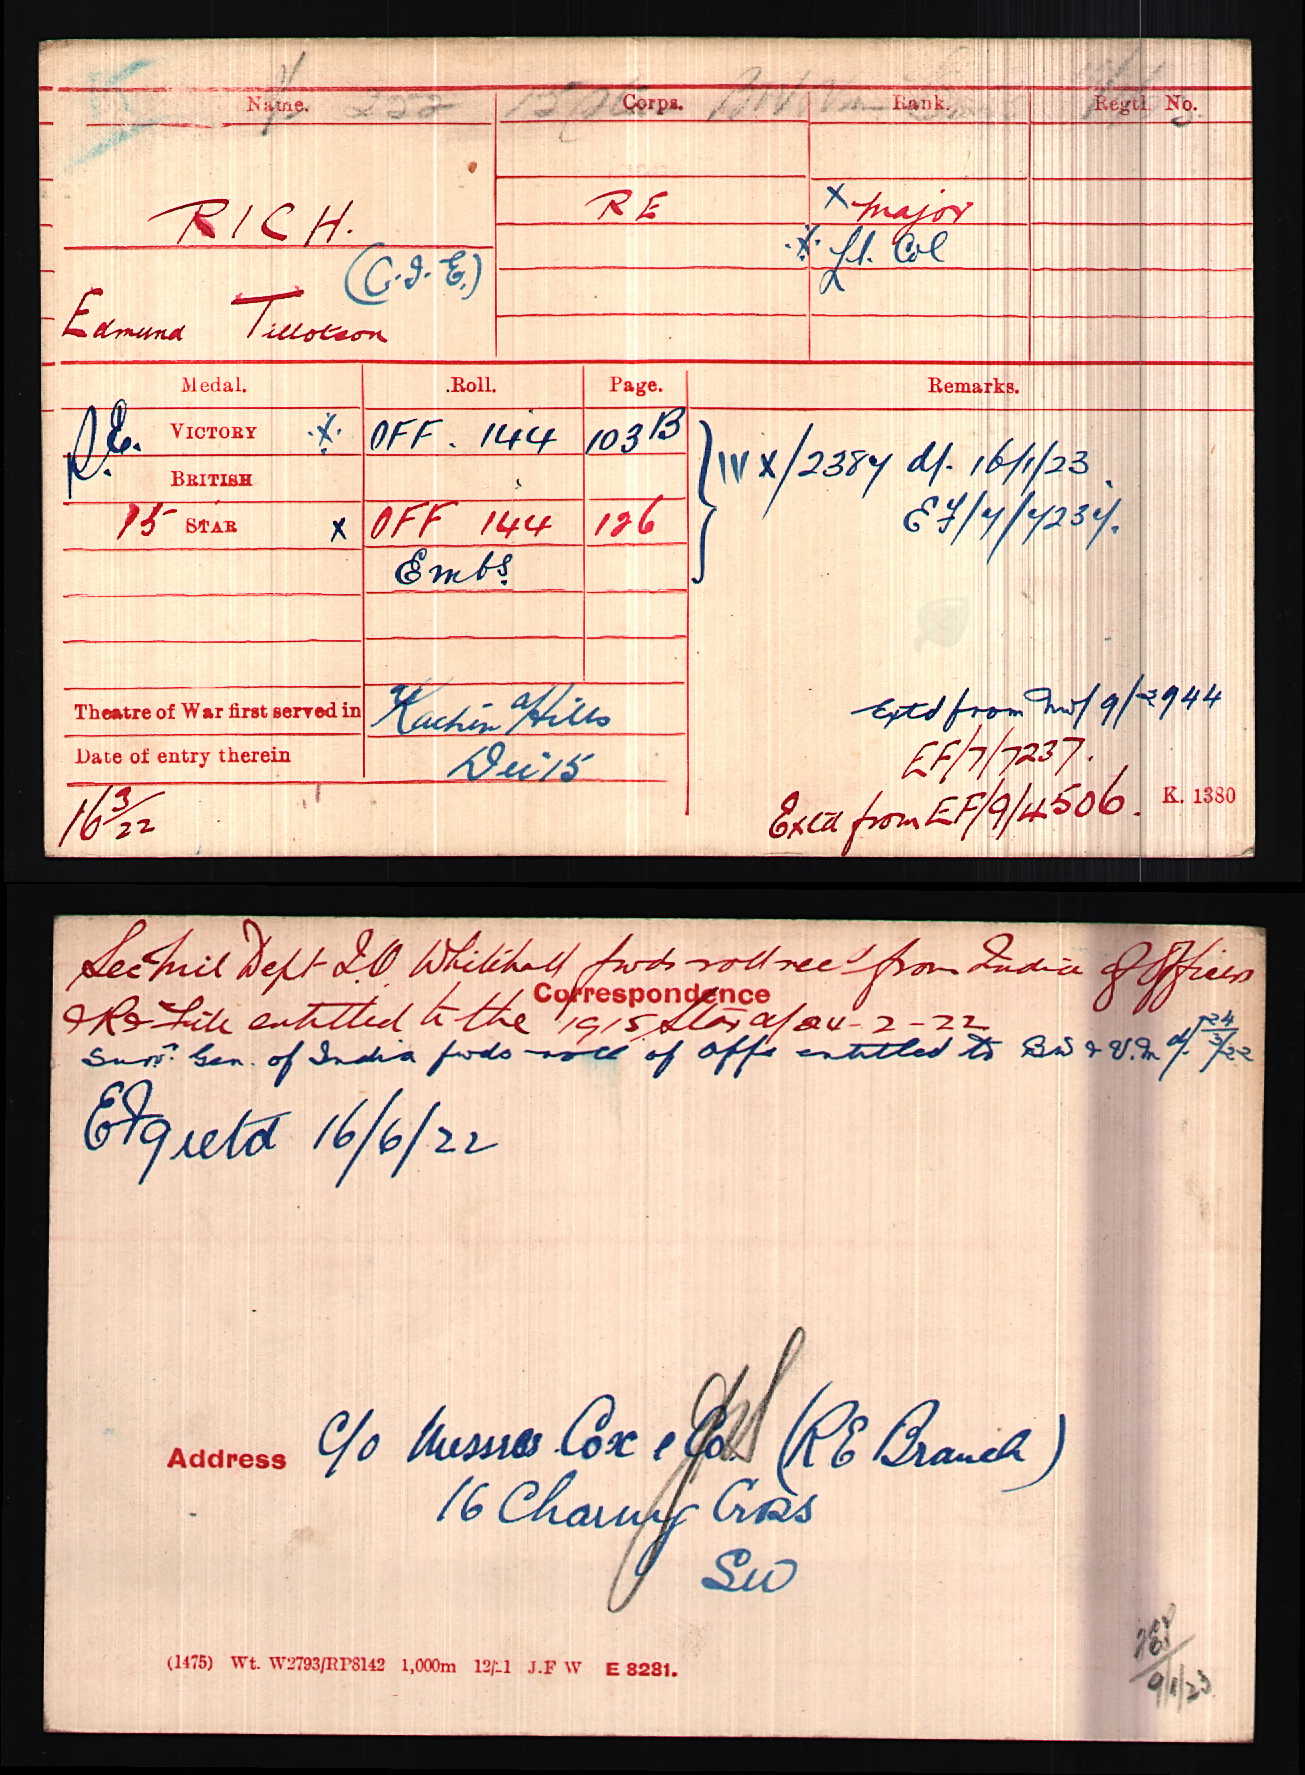 Name. Corps. Rank. Regtl. No.
RICH. RE x Major
(C.I.E.) x Lt. Col
Edmund Tillotson
Medal. Roll. Page. Remarks.
R.E. VICTORY x OFF. 144 103B IV X/2387 d/- 16/1/23
BRITISH EF/7/7237.
15 STAR x OFF 144 126
Embs.
Theatre of War first served in Kachin Hills
Extd from NW/9/2944
Date of entry therein Dec 15
EF/7/7237.
16 3/22 Extd from EF/9/4506. K. 1380
Sec Mil Dept IO Whitehall fwds roll recd from India of Officers
Correspondence
& R & File entitled to the 1915 Star d/ 24-2-22
Survr. Gen. of India fwds roll of Offs entitled to BW & V.M d/- 24/3/22
EF9 retd 16/6/22
Address C/o Messrs Cox & Co. (RE Branch)
16 Charing Cross
SW
(1475) Wt. W2793/RP8142 1,000m 12/21 J.F W E 8281.
9/1/23